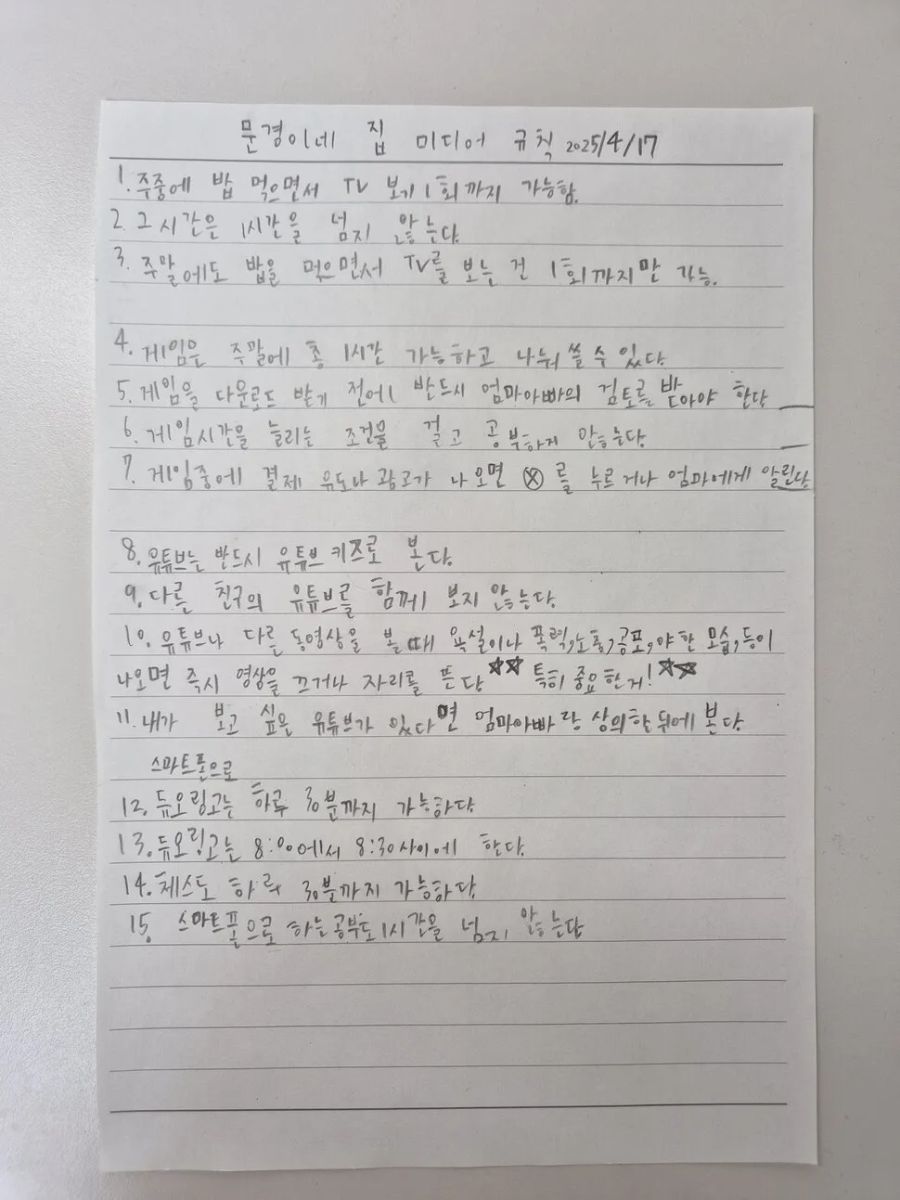 문경이네 집 미디어 규칙 2025/4/17
1. 주중에 밥 먹으면서 TV 보기 1회까지 가능함.
2. 그 시간은 1시간을 넘지 않는다.
3. 주말에도 밥을 먹으면서 TV를 보는 건 1회까지만 가능.
4. 게임은 주말에 총 1시간 가능하고 나눠 쓸 수 있다.
5. 게임을 다운로드 받기 전에 반드시 엄마아빠의 검토를 받아야 한다
6. 게임시간을 늘리는 조건을 걸고 공부하지 않는다.
7. 게임중에 결제 유도나 광고가 나오면 ⓧ를 누르거나 엄마에게 알린다
8. 유튜브는 반드시 유튜브 키즈로 본다.
9. 다른 친구의 유튜브를 함께 보지 않는다.
10. 유튜브나 다른 동영상을 볼때 욕설이나 폭력,노출,공포,야한 모습,등이
나오면 즉시 영상을 끄거나 자리를 뜬다 ☆☆ 특히 중요한거! ☆☆
11. 내가 보고 싶은 유튜브가 있다면 엄마아빠랑 상의한 뒤에 본다.
스마트폰으로
12. 듀오링고는 하루 30분까지 가능하다.
13. 듀오링고는 8:00에서 8:30사이에 한다.
14. 체스도 하루 30분까지 가능하다.
15. 스마트폰으로 하는 공부도 1시간을 넘지 않는다